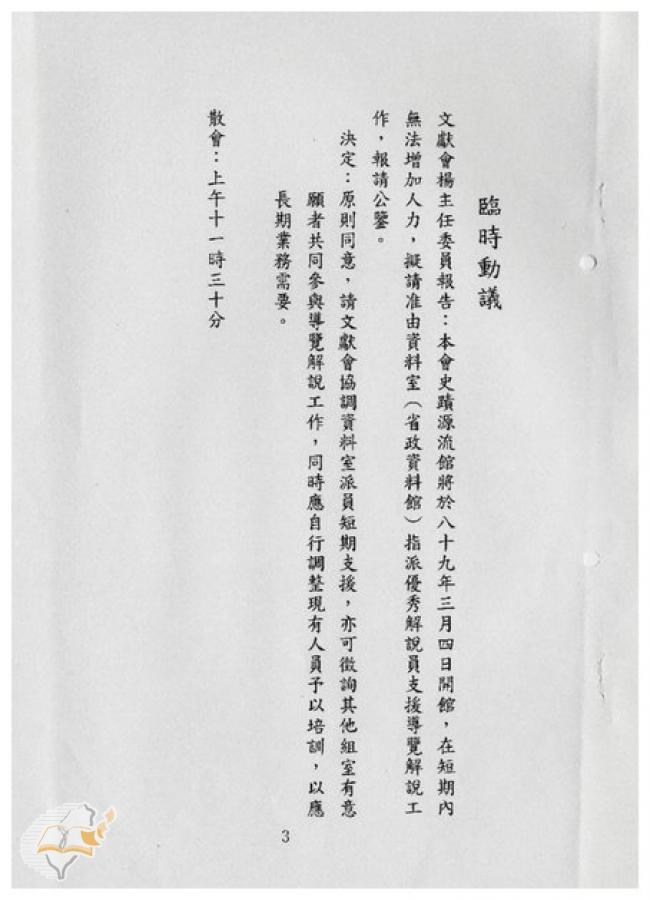 臨時動議
文獻會楊主任委員報告：本會史蹟源流館將於八十九年三月四日開館，在短期內
無法增加人力，擬請准由資料室（省政資料館）指派優秀解說員支援導覽解說工
作，報請公鑒。
決定：原則同意，請文獻會協調資料室派員短期支援，亦可徵詢其他組室有意
願者共同參與導覽解說工作，同時應自行調整現有人員予以培訓，以應
長期業務需要。
散會：上午十一時三十分
3